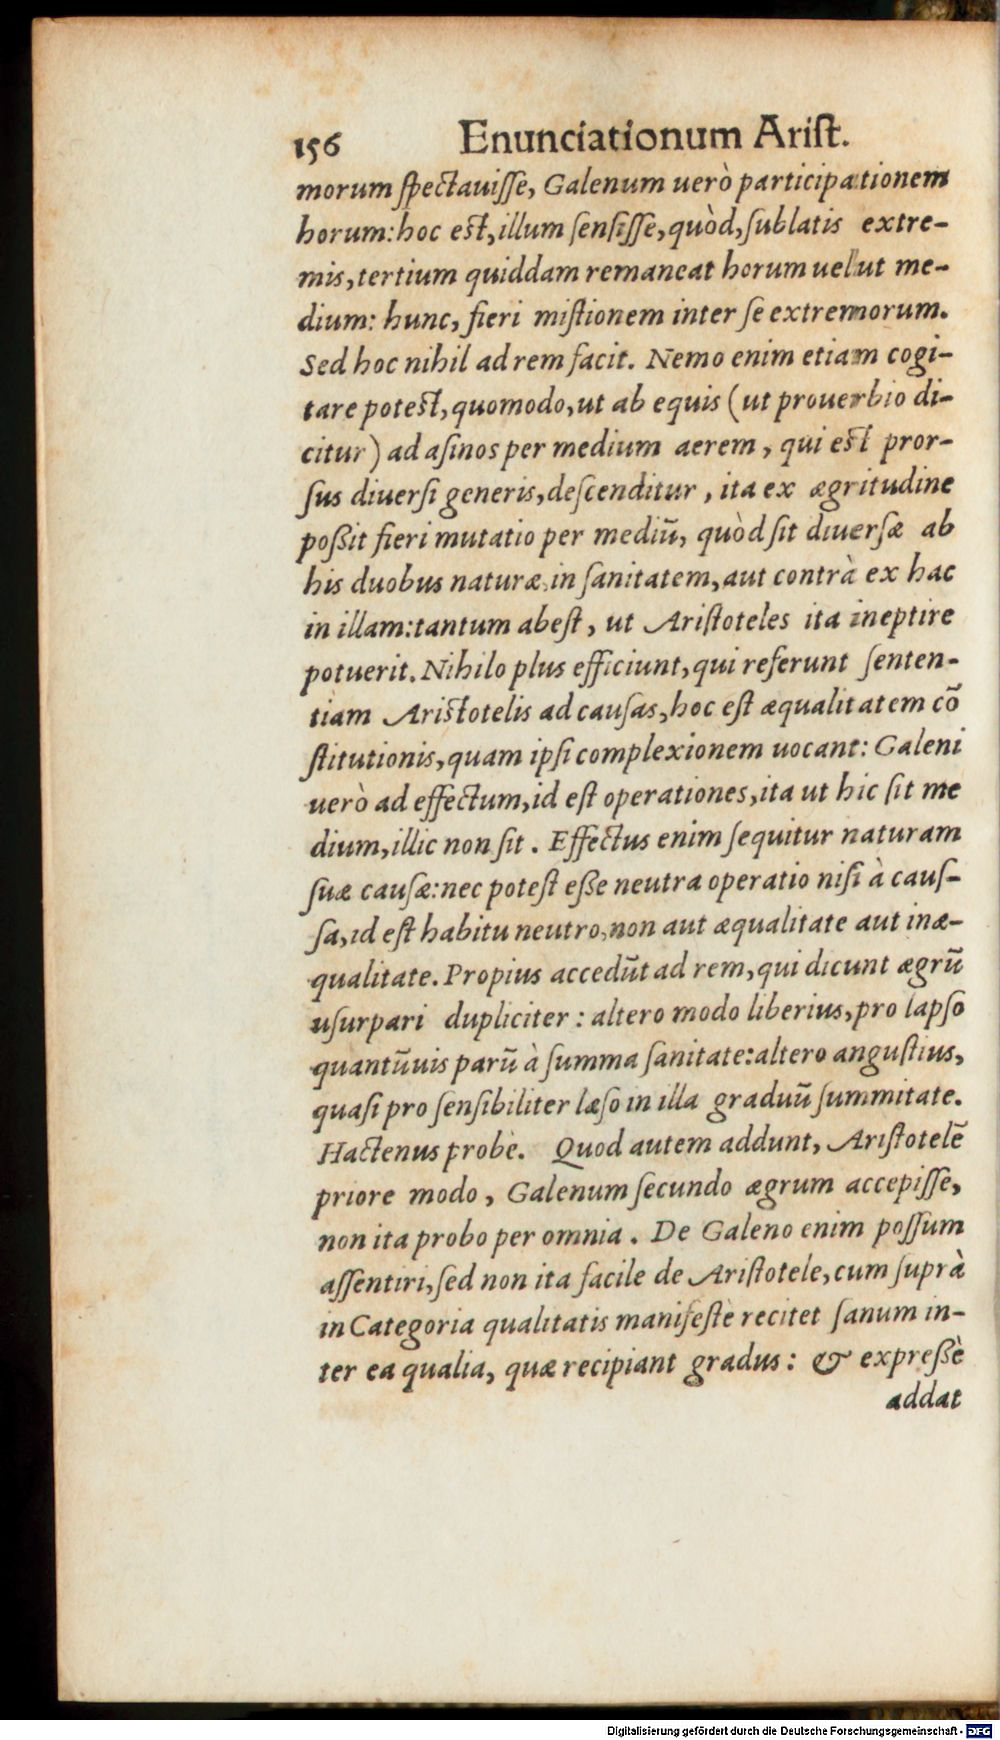 156 Enunciationum Arist.
morum spectauisse, Galenum uerò participationem
horum: hoc est, illum sensisse, quòd, sublatis extre-
mis, tertium quiddam remaneat horum uelut me-
dium: hunc, fieri mistionem inter se extremorum.
Sed hoc nihil ad rem facit. Nemo enim etiam cogi-
tare potest, quomodo, ut ab equis (ut prouerbio di-
citur) ad asinos per medium aerem, qui est pror-
sus diuersi generis, descenditur, ita ex ægritudine
poßit fieri mutatio per mediũ, quòd sit diuersæ ab
his duobus naturæ, in sanitatem, aut contrà ex hac
in illam: tantum abest, ut Aristoteles ita ineptire
potuerit. Nihilo plus efficiunt, qui referunt senten-
tiam Aristotelis ad causas, hoc est æqualitatem cõ
stitutionis, quam ipsi complexionem uocant: Galeni
uerò ad effectum, id est operationes, ita ut hic sit me
dium, illic non sit. Effectus enim sequitur naturam
suæ causæ: nec potest eße neutra operatio nisi à caus-
sa, id est habitu neutro, non aut æqualitate aut inæ-
qualitate. Propius accedũt ad rem, qui dicunt ægrũ
usurpari dupliciter: altero modo liberius, pro lapso
quantũuis parũ à summa sanitate: altero angustius,
quasi pro sensibiliter læso in illa graduũ summitate.
Hactenus probè. Quod autem addunt, Aristotelẽ
priore modo, Galenum secundo ægrum accepisse,
non ita probo per omnia. De Galeno enim possum
assentiri, sed non ita facile de Aristotele, cum suprà
in Categoria qualitatis manifestè recitet sanum in-
ter ea qualia, quæ recipiant gradus: & expreßè
addat
Digitalisierung gefördert durch die Deutsche Forschungsgemeinschaft - DFG